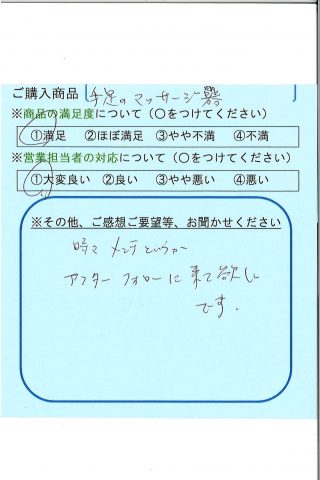 ご購入商品 手足のマッサージ器
※商品の満足度について（○をつけてください）
①満足 ②ほぼ満足 ③やや不満 ④不満
※営業担当者の対応について（○をつけてください）
①大変良い ②良い ③やや悪い ④悪い
※その他、ご感想ご要望等、お聞かせください
時々メンテというか
アフターフォローに来て欲しい
です.